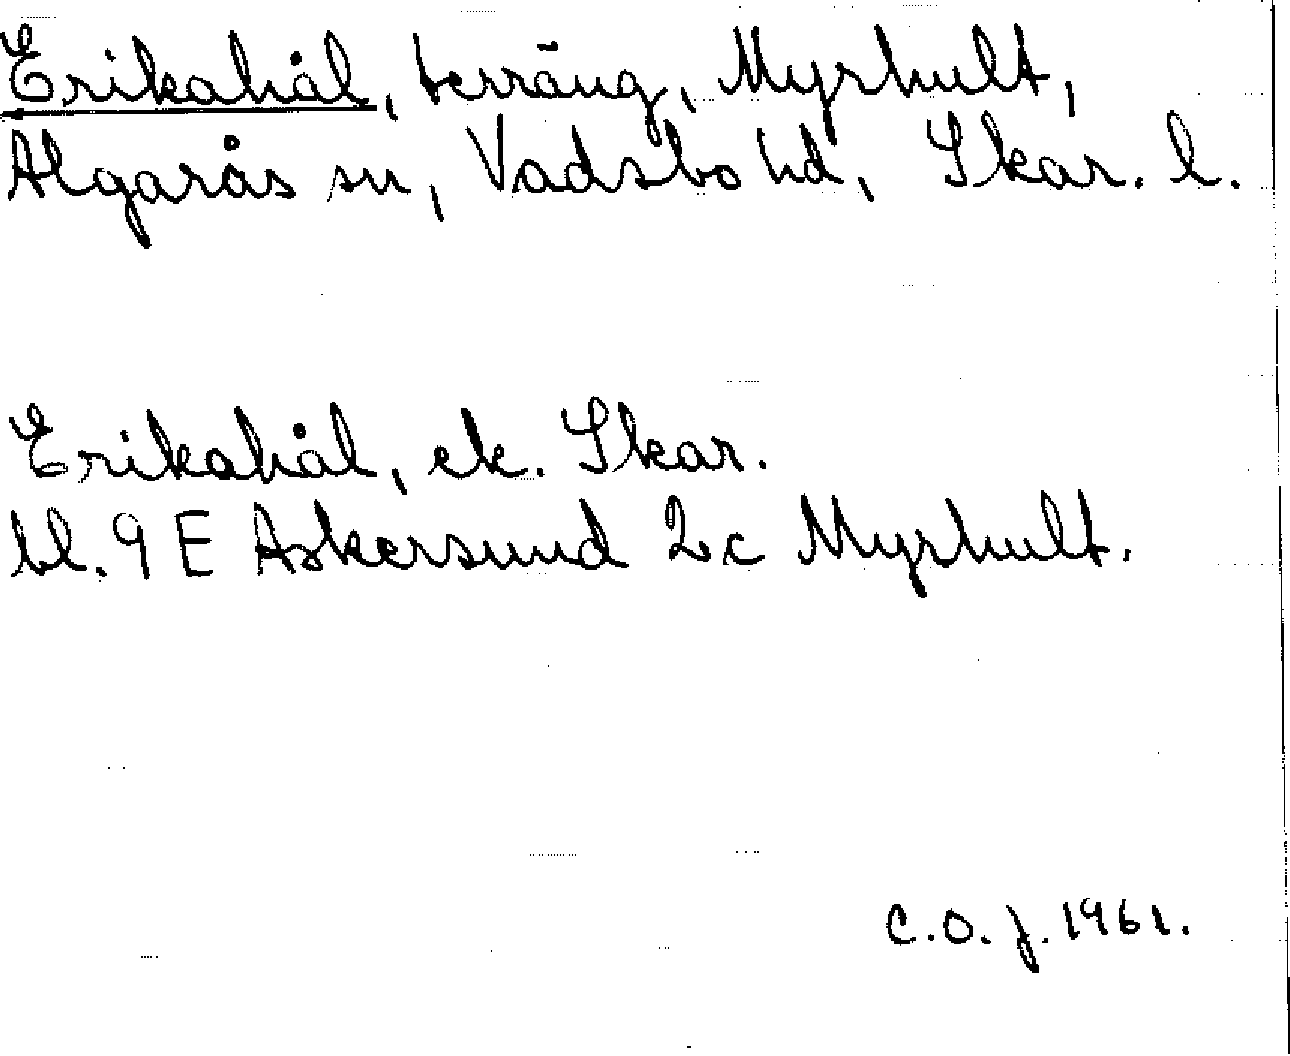 Erikahål, terräng, Myrhult,
Algarås sn, Vadsbo hd, Skar. l.
Erikahål, ek. Skar.
bl. 9 E Askersund 2 c Myrhult.
C.O.J. 1961.